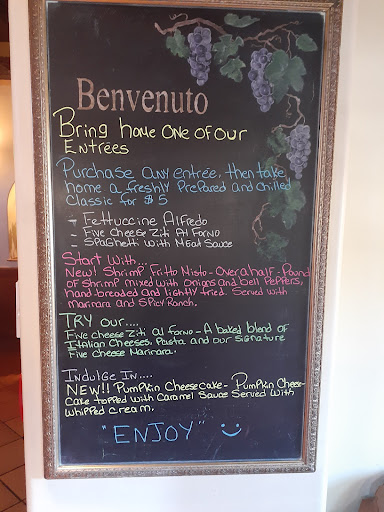 Benvenuto
Bring home one of our
Entrées
Purchase any entrée, then take
home a freshly Prepared and chilled
classic for $5
- Fettuccine Alfredo
- Five Cheese Ziti Al Forno
- Spaghetti with Meat Sauce
Start With...
New! Shrimp Fritto Misto - Over a half - Pound
of shrimp mixed with onions and bell Peppers,
hand-breaded and lightly fried. Served with
marinara and Spicy Ranch.
TRY our....
Five cheese Ziti al forno - A baked blend of
Italian Cheeses, Pasta and our signature
Five Cheese Marinara.
Indulge In....
NEW!! Pumpkin Cheesecake - Pumpkin Cheese-
Cake topped with Caramel Sauce Served with
whipped cream.
"ENJOY"